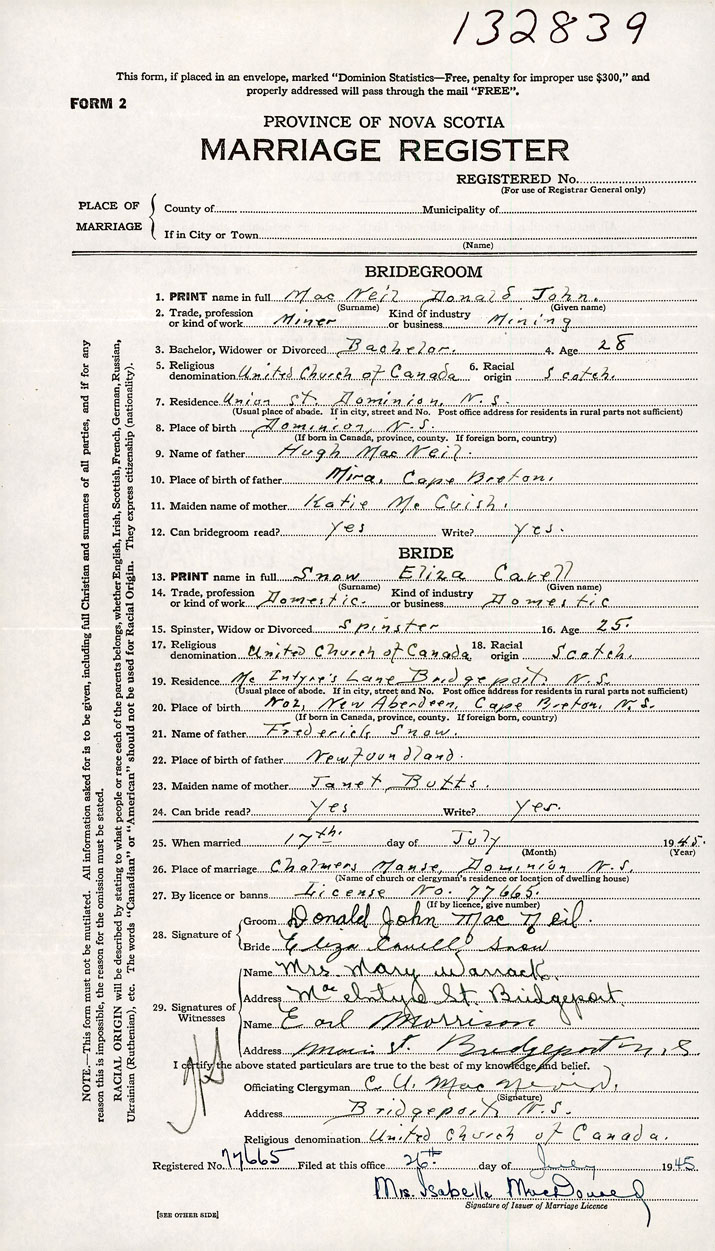 132839
This form, if placed in an envelope, marked "Dominion Statistics—Free, penalty for improper use $300," and
properly addressed will pass through the mail "FREE".
FORM 2
PROVINCE OF NOVA SCOTIA
MARRIAGE REGISTER
REGISTERED No.
(For use of Registrar General only)
PLACE OF MARRIAGE
County of Municipality of
If in City or Town
(Name)
BRIDEGROOM
1. PRINT name in full Mac Neil Donald John.
(Surname) (Given name)
2. Trade, profession or kind of work Miner Kind of industry or business Mining
3. Bachelor, Widower or Divorced Bachelor. 4. Age 28
5. Religious denomination United Church of Canada 6. Racial origin Scotch.
7. Residence Union St. Dominion, N.S.
(Usual place of abode. If in city, street and No. Post office address for residents in rural parts not sufficient)
8. Place of birth Dominion, N.S.
(If born in Canada, province, county. If foreign born, country)
9. Name of father Hugh Mac Neil.
10. Place of birth of father Mira, Cape Breton.
11. Maiden name of mother Katie Mc Cuish.
12. Can bridegroom read? Yes Write? Yes.
BRIDE
13. PRINT name in full Snow Eliza Cavell
(Surname) (Given name)
14. Trade, profession or kind of work Domestic. Kind of industry or business Domestic
15. Spinster, Widow or Divorced Spinster 16. Age 25.
17. Religious denomination United Church of Canada 18. Racial origin Scotch.
19. Residence Mc Intyre's Lane Bridgeport, N.S.
(Usual place of abode. If in city, street and No. Post office address for residents in rural parts not sufficient)
20. Place of birth No2, New Aberdeen, Cape Breton, N.S.
(If born in Canada, province, county. If foreign born, country)
21. Name of father Frederick Snow.
22. Place of birth of father Newfoundland.
23. Maiden name of mother Janet Butts.
24. Can bride read? Yes Write? Yes.
25. When married 17th. day of July 1945.
(Month) (Year)
26. Place of marriage Chalmers Manse, Dominion N.S.
(Name of church or clergyman's residence or location of dwelling house)
27. By licence or banns License No. 77665.
(If by licence, give number)
28. Signature of
Groom Donald John Mac Neil.
Bride Eliza Cavell Snow
29. Signatures of Witnesses
Name Mrs. Mary Warrack.
Address Mac Intyre St. Bridgeport.
Name Earl Morrison
Address Main St. Bridgeport N.S
I certify the above stated particulars are true to the best of my knowledge and belief.
Officiating Clergyman C. U. Mac
(Signature)
Address Bridgeport, N.S.
Religious denomination United Church of Canada.
Registered No. 77665 Filed at this office 26th day of July 1945
Mrs. Isabelle
Signature of Issuer of Marriage Licence
[SEE OTHER SIDE]
NOTE.—This form must not be mutilated. All information asked for is to be given, including full Christian and surnames of all parties, and if for any
reason this is impossible, the reason for the omission must be stated.
RACIAL ORIGIN will be described by stating to what people or race each of the parents belongs, whether English, Irish, Scottish, French, German, Russian,
Ukrainian (Ruthenian), etc. The words "Canadian" or "American" should not be used for Racial Origin. They express citizenship (nationality).